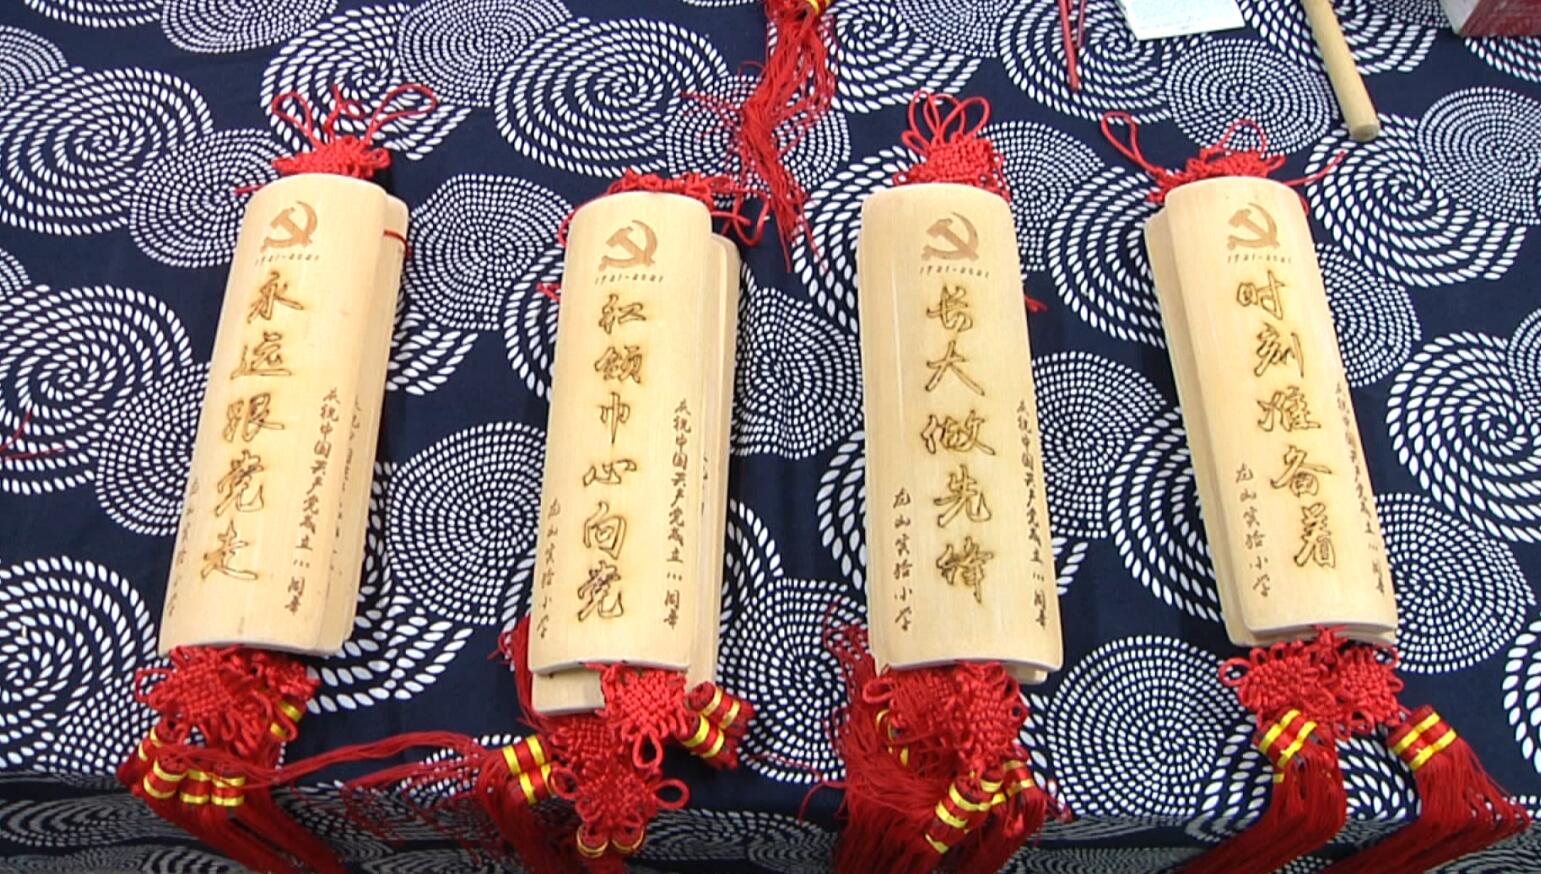 1921-2021
永远跟党走
庆祝中国共产党成立
龙山实验小学
1921-2021
红领巾心向党
庆祝中国共产党成立
龙山实验小学
1921-2021
长大做先锋
庆祝中国共产党成立
龙山实验小学
1921-2021
时刻准备着
庆祝中国共产党成立
龙山实验小学